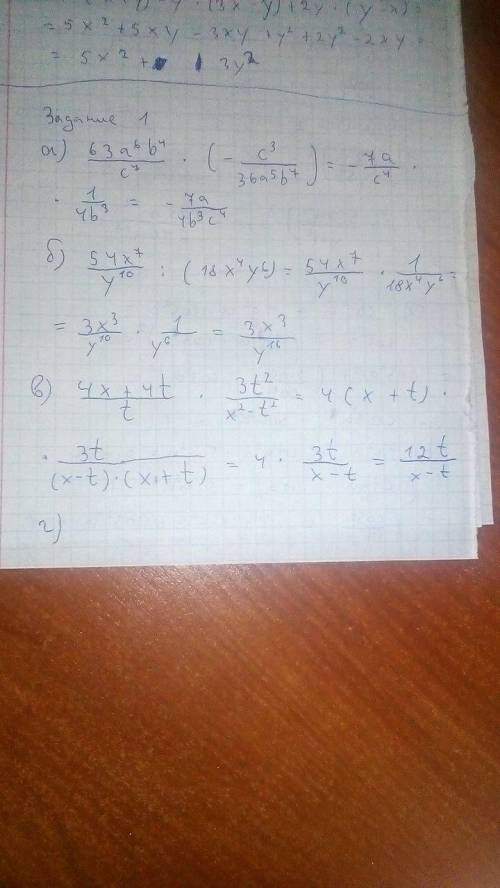 = 5x² + 5xy - 3xy + y² + 2y² - 2xy =
= 5x² + 3y²
Задание 1
а) 63a⁶b⁴/c⁷ · (- c³/36a⁵b⁷) = - 7a/c⁴ ·
· 1/4b³ = - 7a/4b³c⁴
б) 54x⁷/y¹⁰ : (18x⁴y⁶) = 54x⁷/y¹⁰ · 1/18x⁴y⁶ =
= 3x³/y¹⁰ · 1/y⁶ = 3x³/y¹⁶
в) 4x + 4t/t · 3t²/x² - t² = 4(x + t) ·
· 3t/(x-t)·(x+t) = 4 · 3t/x-t = 12t/x-t
г)